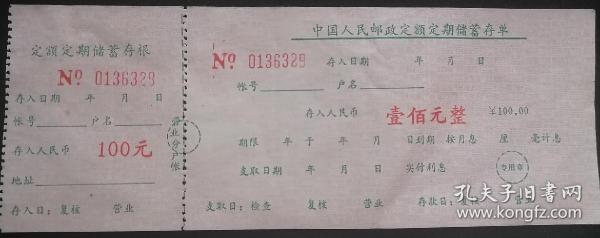 定额定期储蓄存根
Nº 0136329
存入日期 年 月 日
帐号 户名
存入人民币 100元
地址
存入日：复核 营业
营业分户帐
中国人民邮政定额定期储蓄存单
Nº 0136329 存入日期 年 月 日
帐号 户名
存入人民币 壹佰元整 ￥100.00
期限 年于 年 月 日到期 按月息 厘 毫计息
支取日期 年 月 日 实付利息
专用章
支取日：检查 复核 营业 存款日：复核 营业
孔夫子旧书网
www.kongfz.com